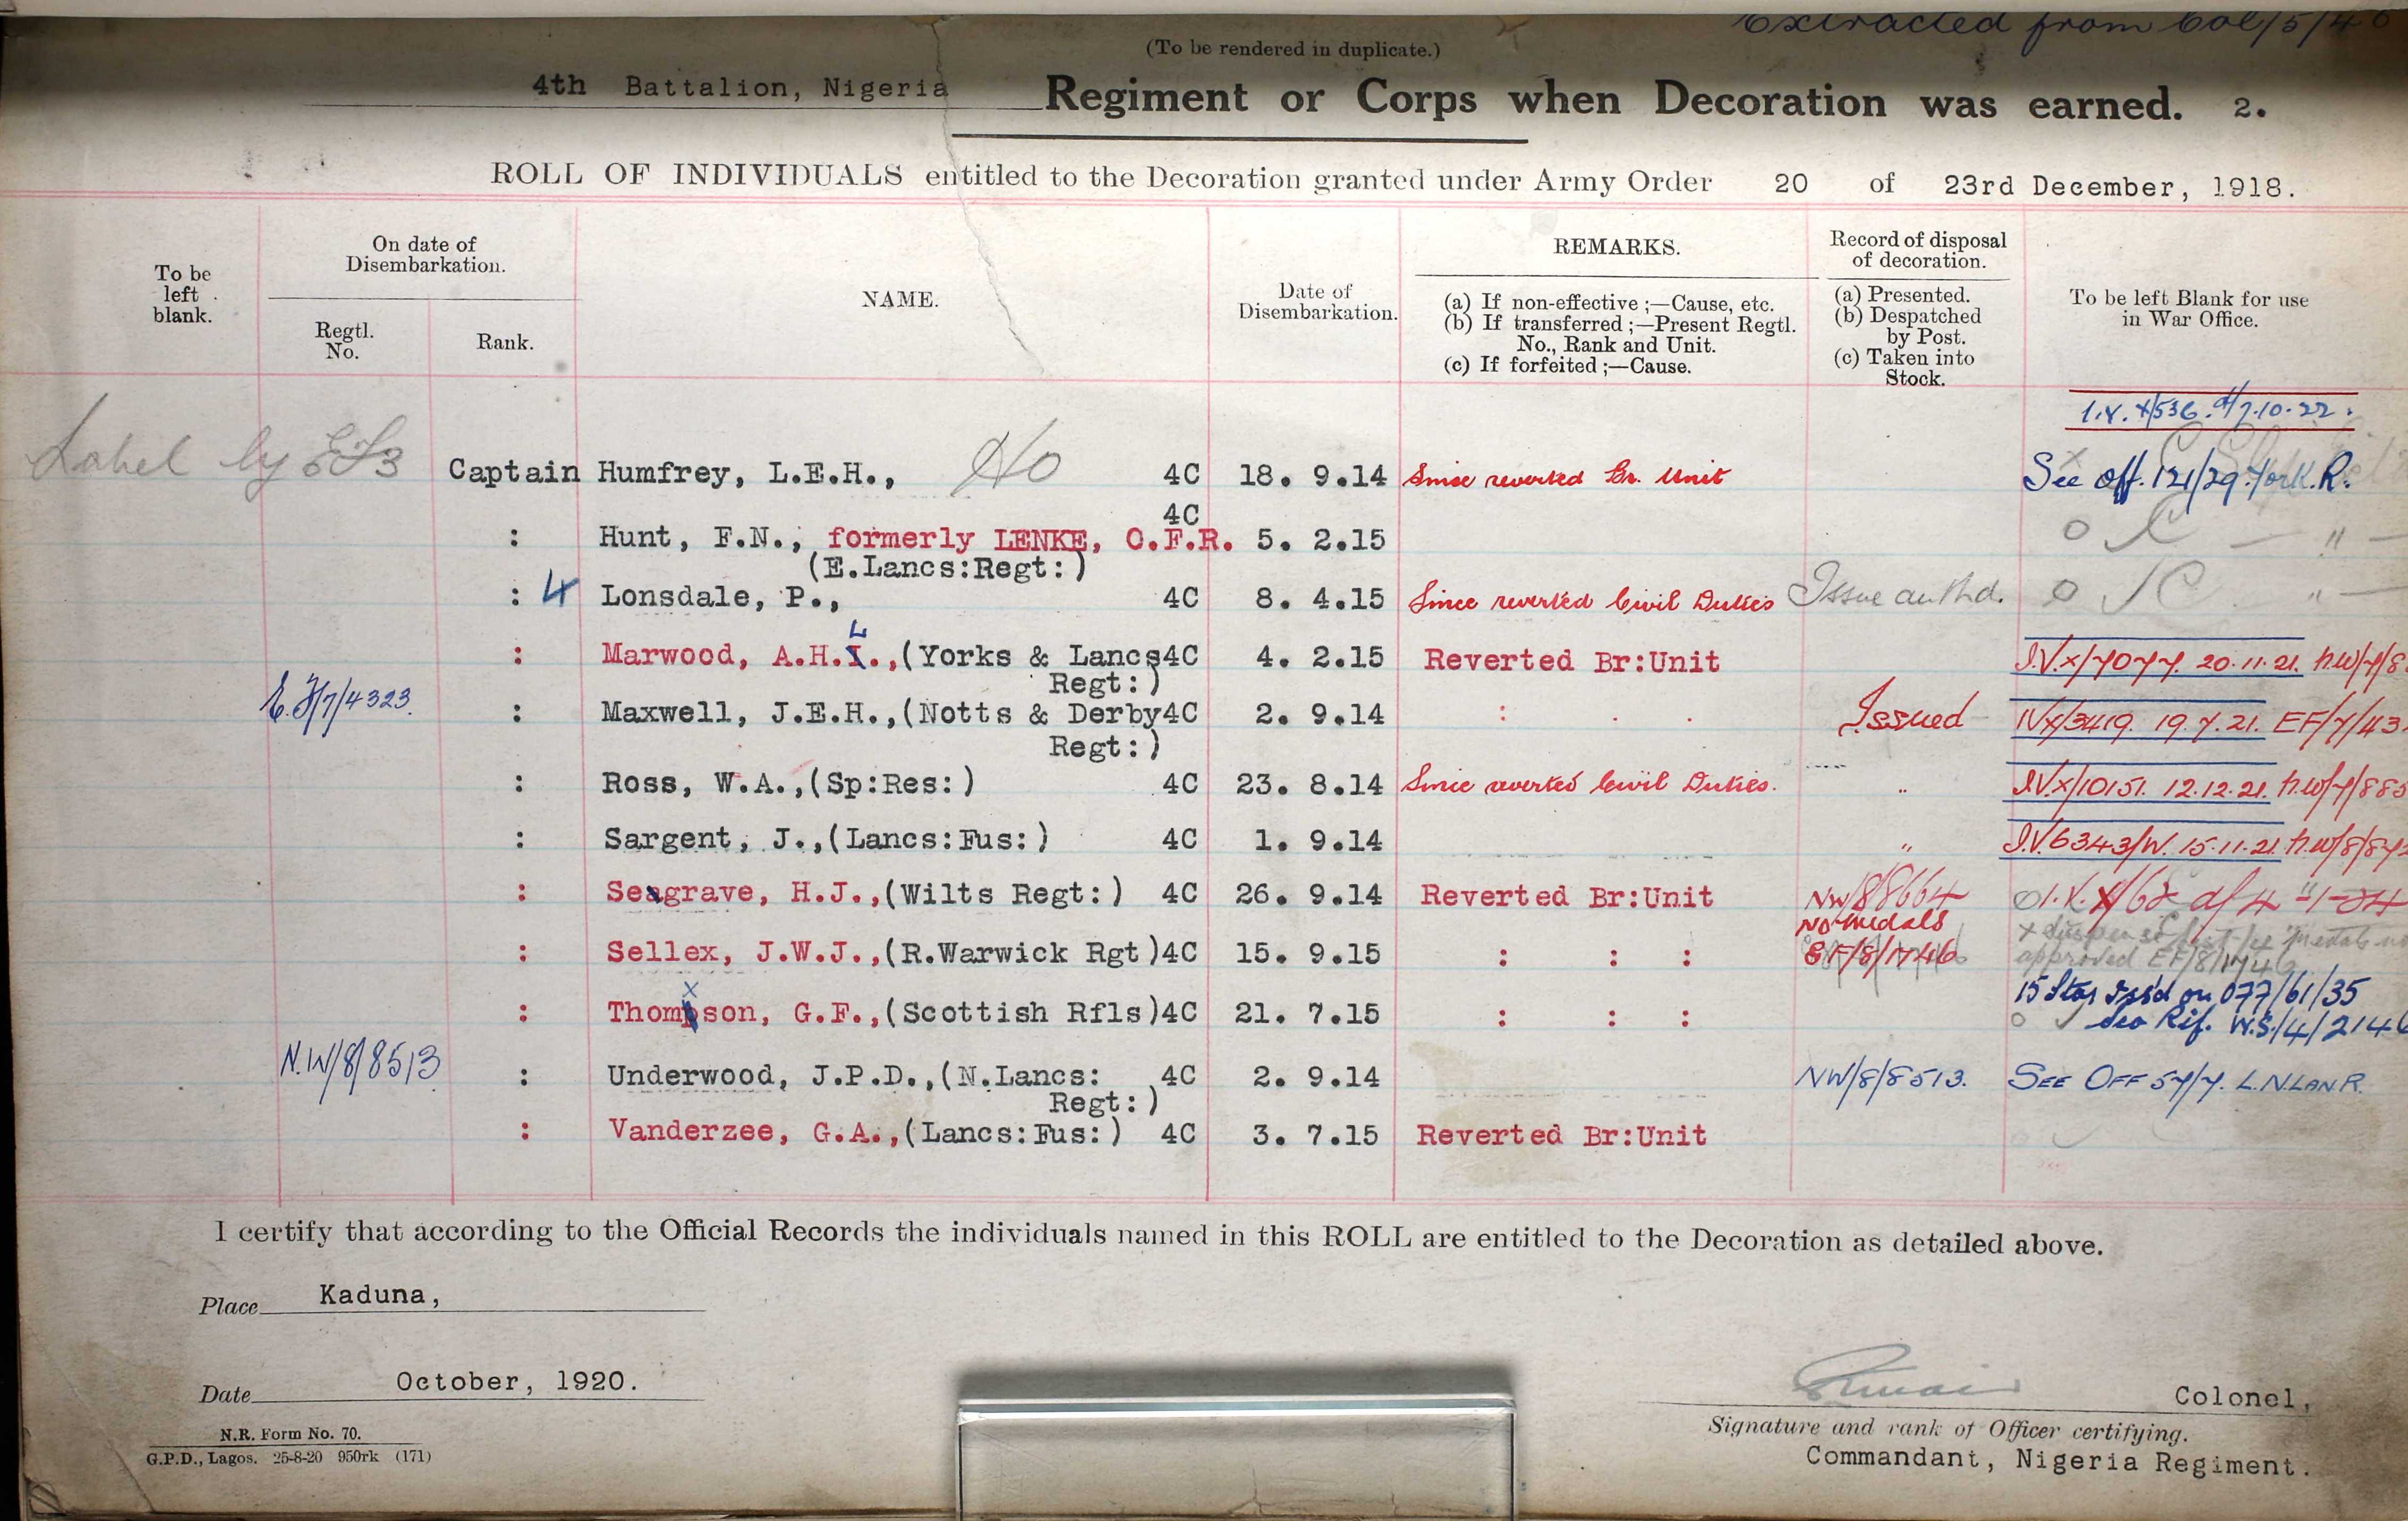 Extracted from Col/5/4
(To be rendered in duplicate.)
4th Battalion, Nigeria Regiment or Corps when Decoration was earned. 2.
ROLL OF INDIVIDUALS entitled to the Decoration granted under Army Order 20 of 23rd December, 1918.
To be left blank.
On date of Disembarkation.
Regtl. No.
Rank.
NAME.
Date of Disembarkation.
REMARKS.
(a) If non-effective ;—Cause, etc.
(b) If transferred ;—Present Regtl. No., Rank and Unit.
(c) If forfeited ;—Cause.
Record of disposal of decoration.
(a) Presented.
(b) Despatched by Post.
(c) Taken into Stock.
To be left Blank for use in War Office.
1.V. X/536. d/7.10.22.
Label by EF3 Captain Humfrey, L.E.H., No 4C 18. 9.14 Since reverted Br. Unit See Off. 121/29 York. R.
4C
: Hunt, F.N., formerly LENKE, O.F.R. 5. 2.15
(E.Lancs:Regt:)
: 4 Lonsdale, P., 4C 8. 4.15 Since reverted Civil Duties Issue authd.
L
: Marwood, A.H.I.,(Yorks & Lancs 4C 4. 2.15 Reverted Br:Unit I.V.X/7077. 20.11.21. N.W/7/8
Regt:)
E.F/7/4323. : Maxwell, J.E.H.,(Notts & Derby 4C 2. 9.14 : . . Issued IVX/3419. 19.7.21. EF/7/43
Regt:)
: Ross, W.A.,(Sp:Res:) 4C 23. 8.14 Since reverted Civil Duties. " I.V.X/10151. 12.12.21. N.W/7/885
: Sargent, J.,(Lancs:Fus:) 4C 1. 9.14 " I.V.6343/W. 15.11.21. N.W/8/87
: Seagrave, H.J.,(Wilts Regt:) 4C 26. 9.14 Reverted Br:Unit NW/88664
No medals
: Sellex, J.W.J.,(R.Warwick Rgt) 4C 15. 9.15 : : : EF/8/1746 approved EF/8/1746
15 Star Issd on 077/61/35
: Thompson, G.F.,(Scottish Rfls) 4C 21. 7.15 : : : Sco Rif. W.S/4/2146
N.W/8/8513 : Underwood, J.P.D.,(N.Lancs: 4C 2. 9.14 NW/8/8513. SEE OFF 57/7. L.N.LAN.R.
Regt:)
: Vanderzee, G.A.,(Lancs:Fus:) 4C 3. 7.15 Reverted Br:Unit
I certify that according to the Official Records the individuals named in this ROLL are entitled to the Decoration as detailed above.
Place Kaduna,
Date October, 1920.
Colonel,
Signature and rank of Officer certifying.
Commandant, Nigeria Regiment.
N.R. Form No. 70.
G.P.D., Lagos. 25-8-20 950rk (171)